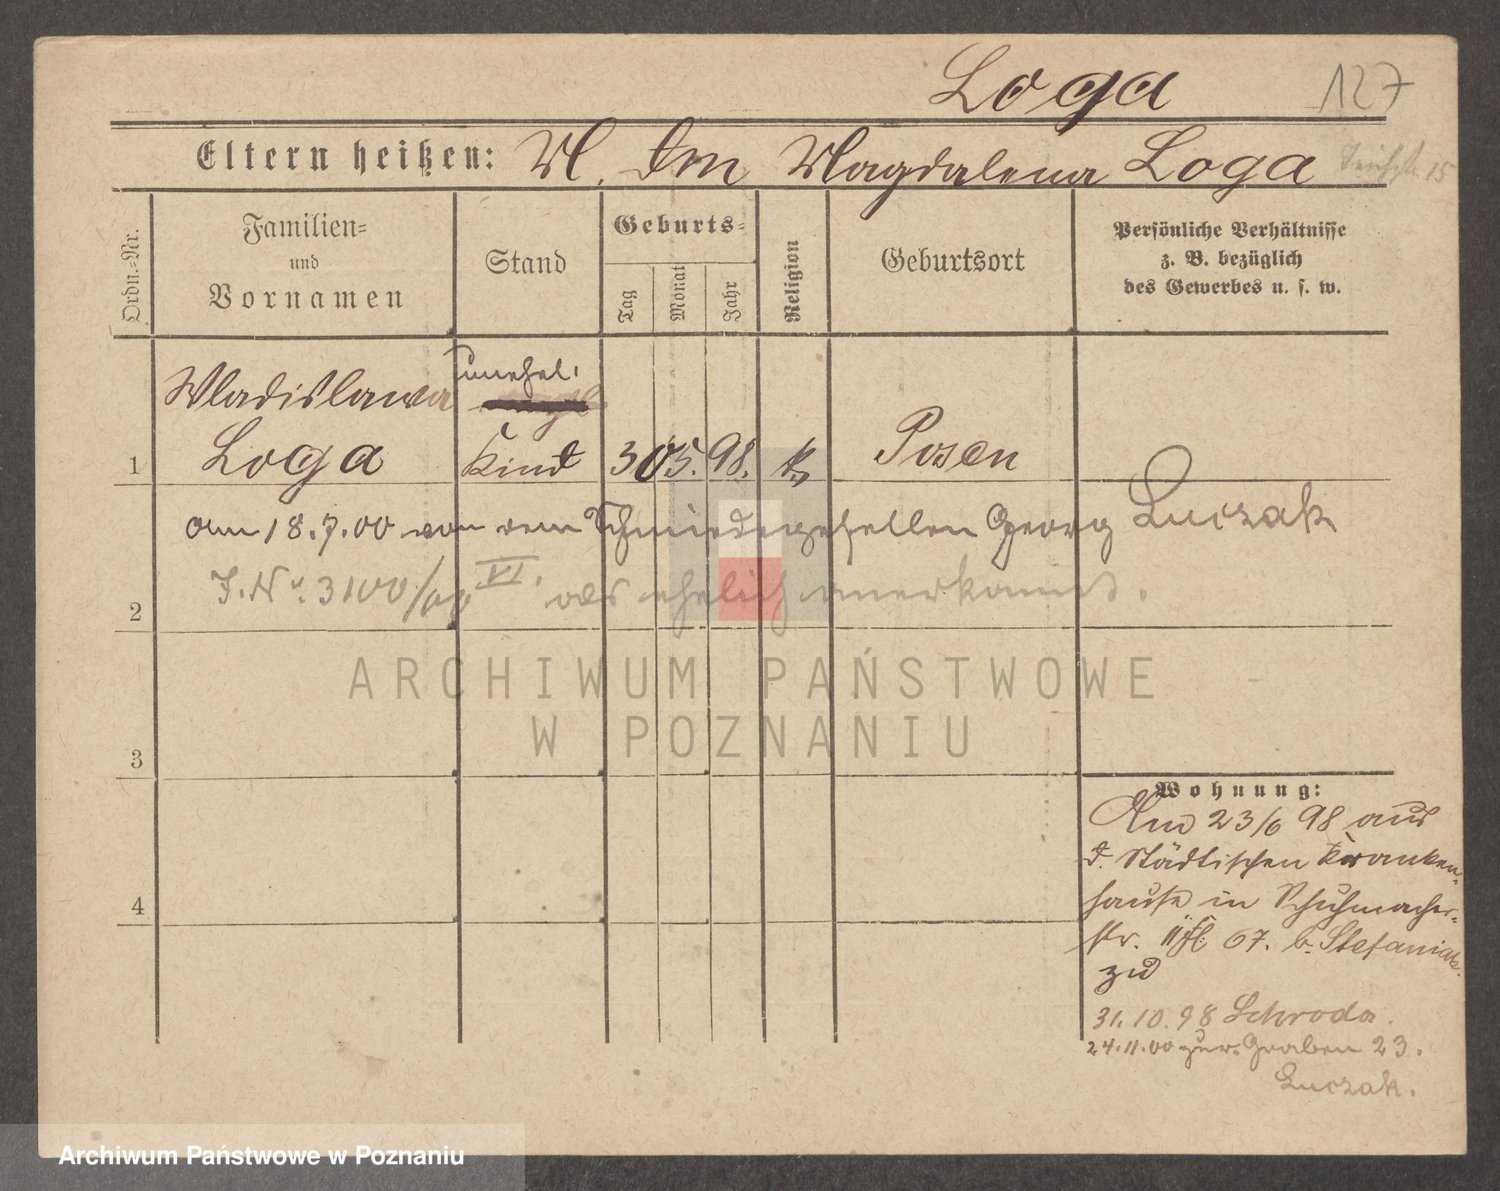 Loga 127
Eltern heißen: M. Magdalena Loga
Ordn.-Nr.
Familien-
und
Vornamen
Stand
Geburts-
Tag
Monat
Jahr
Religion
Geburtsort
Persönliche Verhältnisse
z. B. bezüglich
des Gewerbes u. s. w.
Wladislawa unehel.
1 Loga Kind 30 5. 98. k. Posen
am 18.7.00 von dem Schmiedegesellen Georg Luczak
2 J. Nr. 3100/00 VI. als ehelich anerkannt.
ARCHIWUM PAŃSTWOWE
W POZNANIU
3
4
Wohnung:
Am 23/6 98 aus
d. Städtischen Kranken-
hause in Schuhmacher-
str. 67. b. Stefaniak
zu
31.10.98 Schroda.
24.11.00 zur. Graben 23.
Luczak.
Archiwum Państwowe w Poznaniu